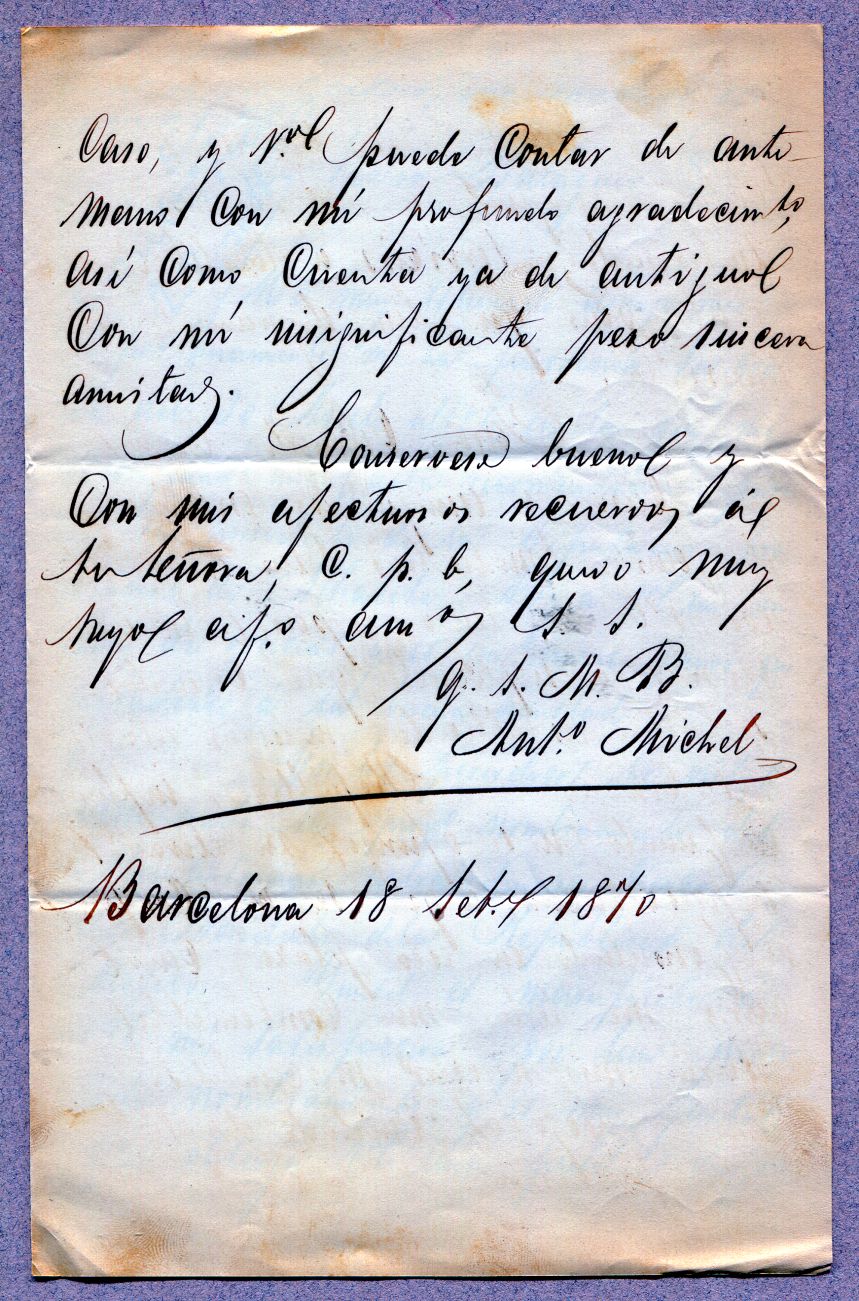 Caso, y V. puede Contar de ante-
mano Con mi profundo agradecimto,
así Como Cuenta ya de antiguo
Con mi insignificante pero sincera
amistad.
Conservese bueno y
Con mis afectuosos recuerdos á
su señora, C. p. b, quedo muy
suyo af.o amo S. S.
q. s. M. B.
Ant.o Michel
Barcelona 18 Set.e 1870